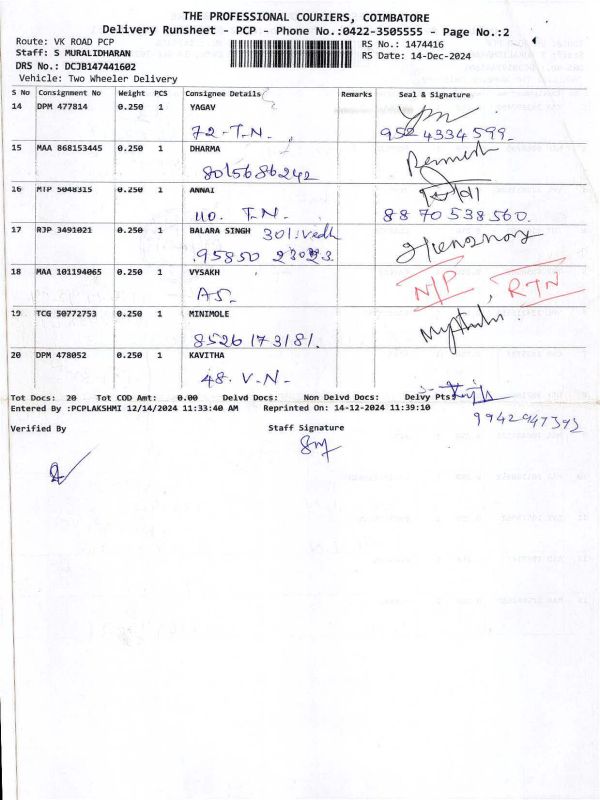 THE PROFESSIONAL COURIERS, COIMBATORE
Delivery Runsheet - PCP - Phone No.:0422-3505555 - Page No.:2
Route: VK ROAD PCP RS No.: 1474416
Staff: S MURALIDHARAN RS Date: 14-Dec-2024
DRS No.: DCJB147441602
Vehicle: Two Wheeler Delivery
S No Consignment No Weight PCS Consignee Details Remarks Seal & Signature
14 DPM 477814 0.250 1 YAGAV
72-T.N. 952 4334 599.
15 MAA 868153445 0.250 1 DHARMA
8015686242
16 MTP 5048315 0.250 1 ANNAI
110. T.N. 88 70 538 560.
17 RJP 3491021 0.250 1 BALARA SINGH 301.vedh
95850 23023
18 MAA 101194065 0.250 1 VYSAKH N/P RTN
A5.
19 TCG 50772753 0.250 1 MINIMOLE
8526173181.
20 DPM 478052 0.250 1 KAVITHA
48. V.N-
Tot Docs: 20 Tot COD Amt: 0.00 Delvd Docs: Non Delvd Docs: Delvy Pts:
Entered By :PCPLAKSHMI 12/14/2024 11:33:40 AM Reprinted On: 14-12-2024 11:39:10
9942947393
Verified By Staff Signature